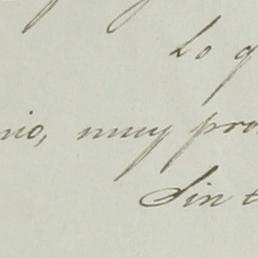 Lo q
nio, muy pro
Sin t